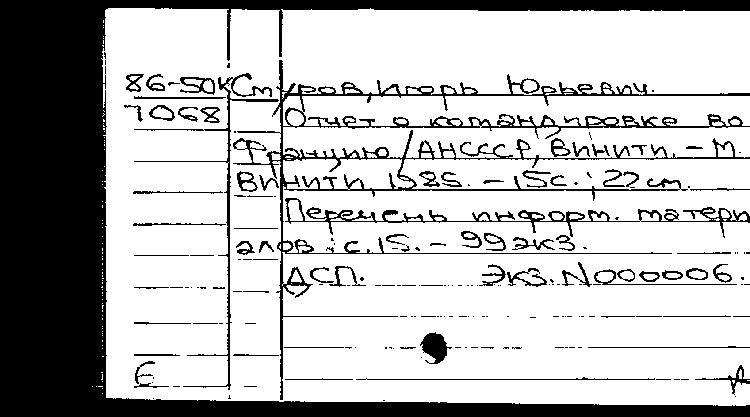 86-50к Стуров, Игорь Юрьевич.
7068 Отчет о командировке во
Францию / АНСССР, ВИНИТИ. - М.
ВИНИТИ, 1985. - 15с.; 22 см.
Перечень информ. матери
алов: с.15. - 99 экз.
ДСП. Экз.N000006.
Е